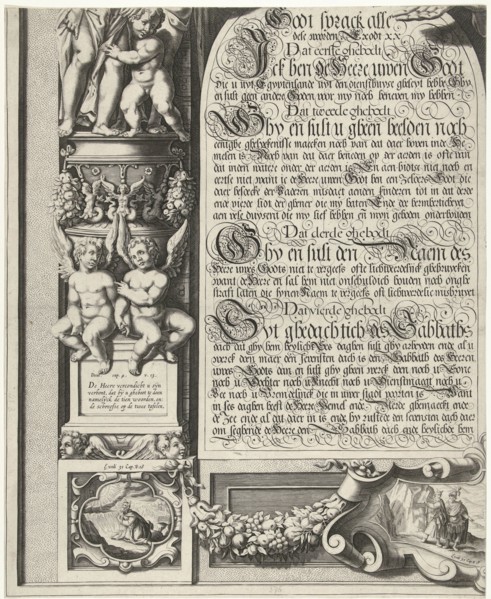 Godt sprack alle
dese woorden Exodi xx
Dat eerste ghebodt.
Ick ben de Heere uwen Godt
Die u uyt Egyptenlandt uyt den diensthuyse gheleyt hebbe Ghy
en sult geen andere Goden voor my noch beneven my hebben.
Dat tweede ghebodt
Ghy en sult u gheen beelden noch
eenighe ghelyckenisse maecken noch van dat daer boven inde He
melen is Noch van dat daer beneden op der aerden is ofte van
dat inden water onder der aerden is En aen bidtse niet noch en
eertse niet want ic de Heere uwen Godt ben een Godt die
daer besoecke der Vaderen misdaet aenden kinderen tot in dat derde
ende vierde lidt der ghener die my haten Ende doe bermherticheyt
aen vele duysent die my lief hebben en myn geboden onderhouden
Dat derde ghebodt
Ghy en sult den Naem des
Heere uwes Godts niet te vergeefs ofte lichtveerdelick ghebruycken
want de Heere en sal hem niet onschuldich houden noch onghe
straft laten die synen Naem te vergeefs oft lichtveerdelic misbruyct
Dat vierde ghebodt
Ghedenckt des Sabbaths
dach dat ghy hem heylicht Ses daghen sult ghy arbeyden ende al u
werck doen maer den sevensten dach is den Sabbath des Heeren
uwes Godts dan en sult ghy geen werck doen noch u Sone
noch u Dochter noch u Knecht noch u Dienstmaegt noch u
Vee noch u Vremdelinck die in uwer stadt poorten is Want
in ses daghen heeft de Heere Hemel ende Aerde ghemaeckt ende
de Zee ende al dat daer in is ende hy rustede ten sevensten dach daer
om seghende de Heere den Sabbath dach ende heylichde hem
Deut. cap. 4. v. 13.
De Heere vercondicht u zijn
verbont, dat hy u ghebiet te doen
namelijck de tien woorden, en
de schreefse op de twee tafelen.
Exodi 31 Cap. V. 18